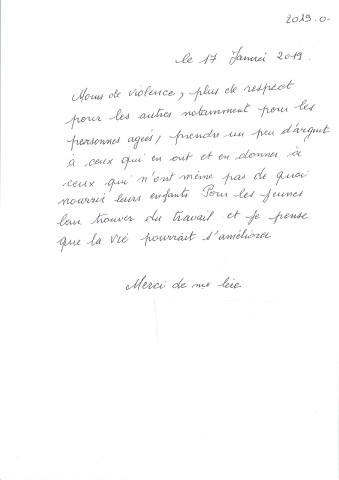 2019-0-
le 17 Janvier 2019.
Moins de violence, plus de respect
pour les autres notamment pour les
personnes agées, prendre un peu d'argent
à ceux qui en ont et en donner à
ceux qui n'ont même pas de quoi
nourrir leurs enfants Pour les jeunes
leur trouver du travail et je pense
que la vie pourrait s'améliorer
Merci de me lire